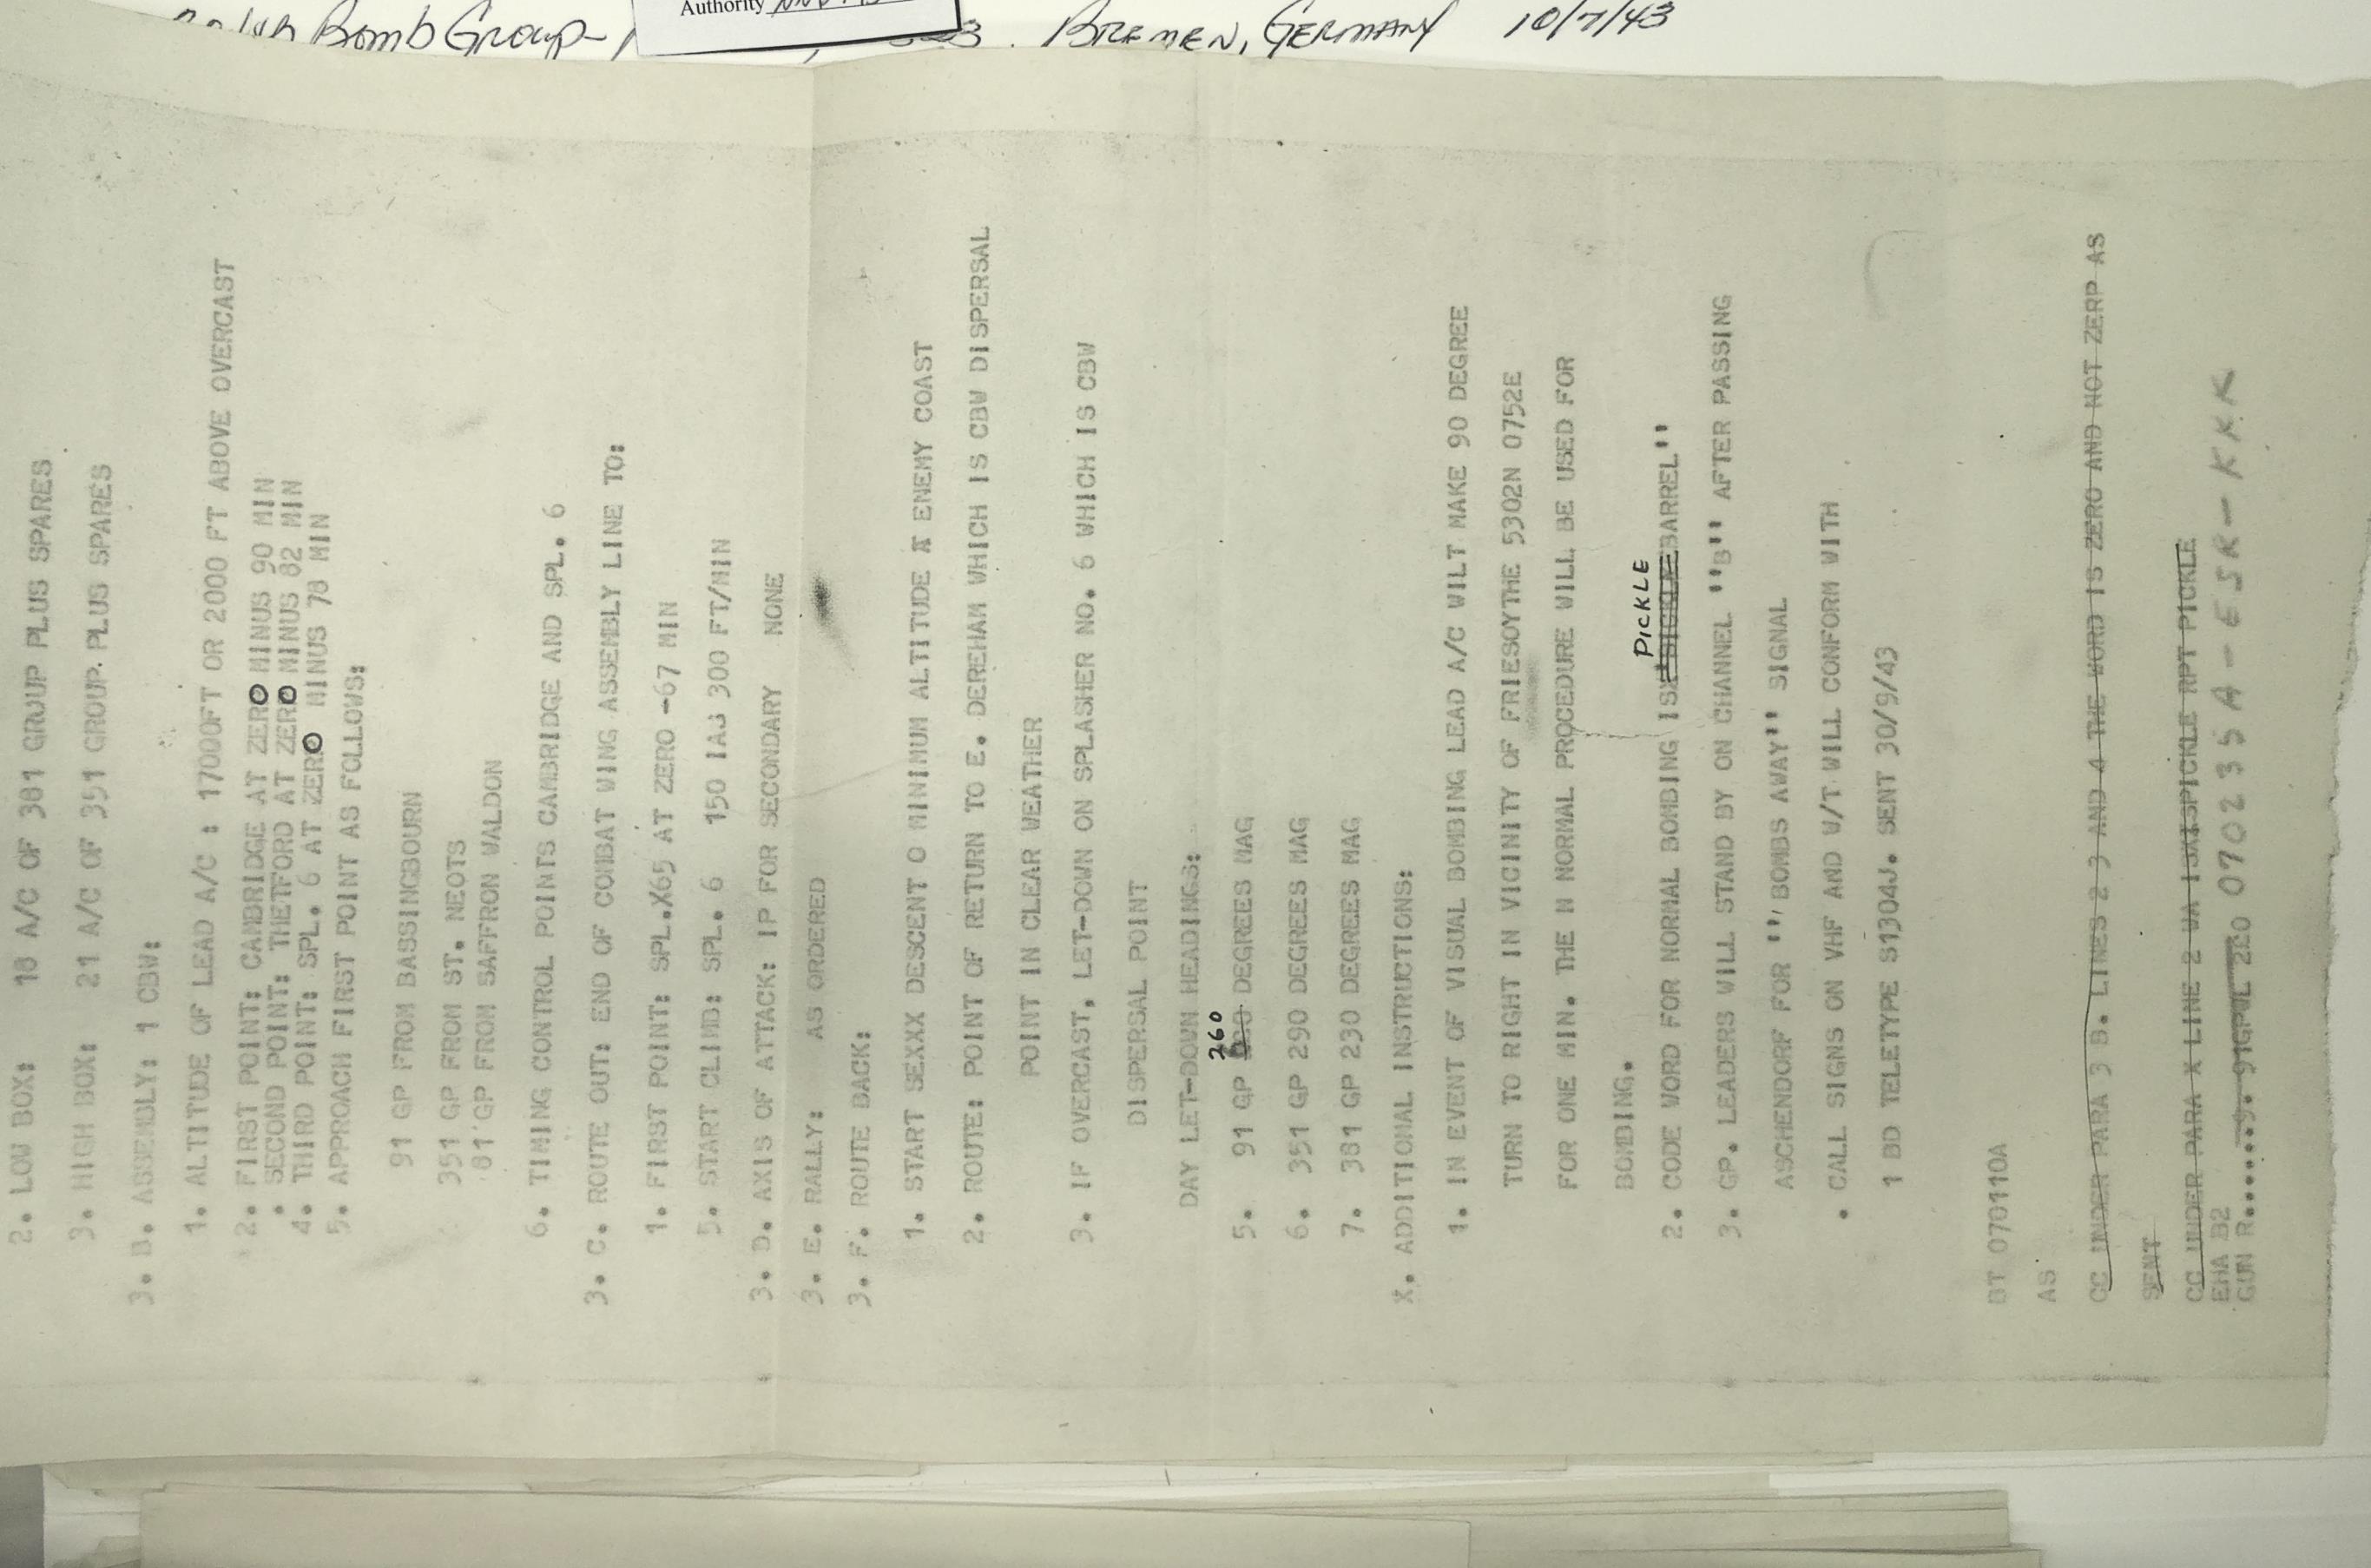 Authority
Bomb Group- BREMEN, GERMANY 10/7/43
2. LOW BOX: 18 A/C OF 381 GROUP PLUS SPARES
3. HIGH BOX: 21 A/C OF 351 GROUP PLUS SPARES
3. B. ASSEMBLY: 1 CBW:
1. ALTITUDE OF LEAD A/C : 17000FT OR 2000 FT ABOVE OVERCAST
2. FIRST POINT: CAMBRIDGE AT ZERO MINUS 90 MIN
. SECOND POINT: THETFORD AT ZERO MINUS 82 MIN
4. THIRD POINT: SPL. 6 AT ZERO MINUS 78 MIN
5. APPROACH FIRST POINT AS FOLLOWS:
91 GP FROM BASSINGBOURN
351 GP FROM ST. NEOTS
81 GP FROM SAFFRON WALDON
6. TIMING CONTROL POINTS CAMBRIDGE AND SPL. 6
3. C. ROUTE OUT: END OF COMBAT WING ASSEMBLY LINE TO:
1. FIRST POINT: SPL.X65 AT ZERO -67 MIN
5. START CLIMB: SPL. 6 150 IAS 300 FT/MIN
3. D. AXIS OF ATTACK: IP FOR SECONDARY NONE
3. E. RALLY: AS ORDERED
3. F. ROUTE BACK:
1. START SEXXX DESCENT O MINIMUM ALTITUDE A ENEMY COAST
2. ROUTE: POINT OF RETURN TO E. DEREHAM WHICH IS CBW DISPERSAL
POINT IN CLEAR WEATHER
3. IF OVERCAST, LET-DOWN ON SPLASHER NO. 6 WHICH IS CBW
DISPERSAL POINT
DAY LET-DOWN HEADINGS:
5. 91 GP 260 DEGREES MAG
6. 351 GP 290 DEGREES MAG
7. 381 GP 230 DEGREES MAG
X. ADDITIONAL INSTRUCTIONS:
1. IN EVENT OF VISUAL BOMBING LEAD A/C WILT MAKE 90 DEGREE
TURN TO RIGHT IN VICINITY OF FRIESOYTHE 5302N 0752E
FOR ONE MIN. THE N NORMAL PROCEDURE WILL BE USED FOR
BOMBING.
2. CODE WORD FOR NORMAL BOMBING IS PICKLE BARREL''
3. GP. LEADERS WILL STAND BY ON CHANNEL ''B'' AFTER PASSING
ASCHENDORF FOR ''BOMBS AWAY'' SIGNAL
. CALL SIGNS ON VHF AND W/T WILL CONFORM WITH
1 BD TELETYPE S1304J. SENT 30/9/43
BT 070110A
AS
CC UNDER PARA 3 B. LINES 2 3 AND 4 THE WORD IS ZERO AND NOT ZERP AS
SENT
CC UNDER PARA X LINE 2 WA ISAISPICKLE RPT PICKLE
EHA B2
GUN R......9. 91GPWL 2E0 070235A-ESR-KKK